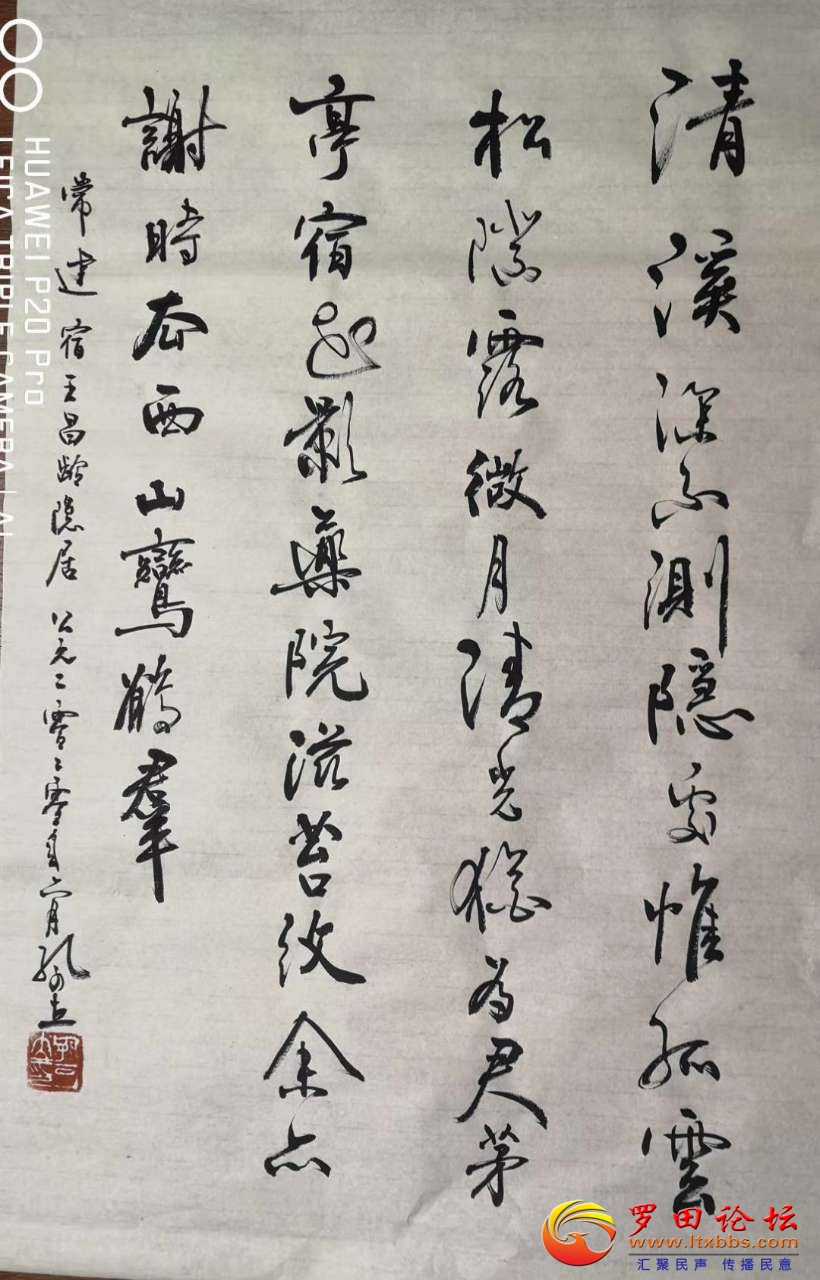 清溪深不測隱處惟孤雲
松際露微月清光猶為君茅
亭宿花影藥院滋苔紋余亦
謝時去西山鸞鶴羣
常建宿王昌齡隱居 公元二零二零年六月
HUAWEI P20 Pro
LEICA TRIPLE CAMERA | AI
罗田论坛
www.ltxbbs.com
汇聚民声 传播民意